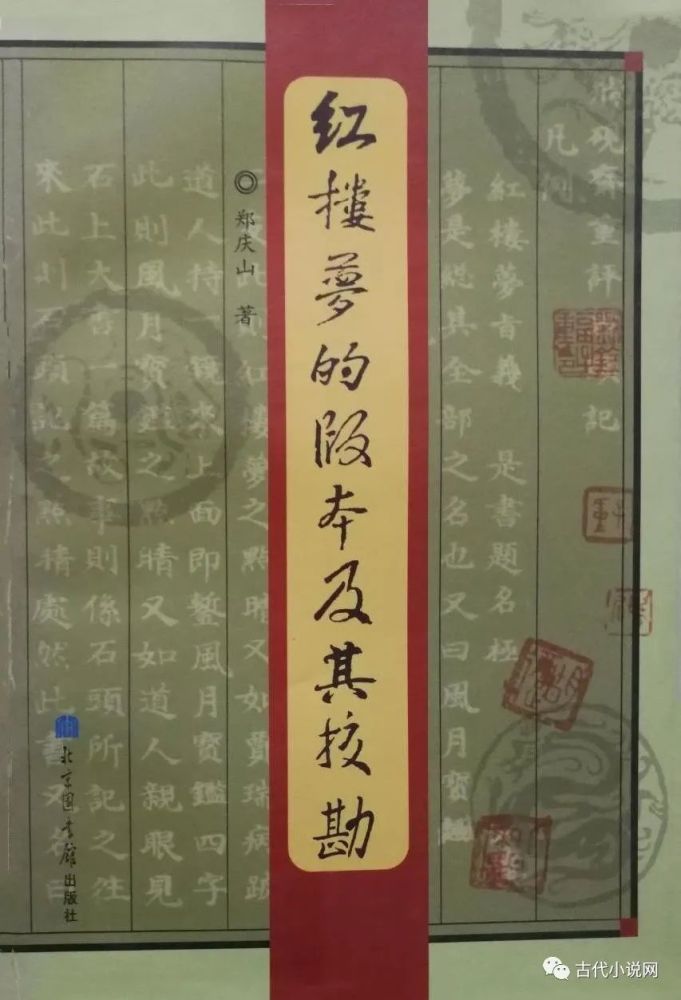 脂硯齋重評記
凡例
紅樓夢旨義 是書題名極
夢是總其全部之名也又曰風月寶鑑
紅樓夢的版本及其校勘
◎ 郑庆山 著
則紅樓夢之點睛又如賈瑞病跛
道人持一鏡來上面即鏨風月寶鑑四字
此則風月寶鑑之點睛又如道人親眼見
石上大書一篇故事則係石頭所記之往
來此則石頭記之點睛處然此書又名曰
北京图书馆出版社
古代小说网